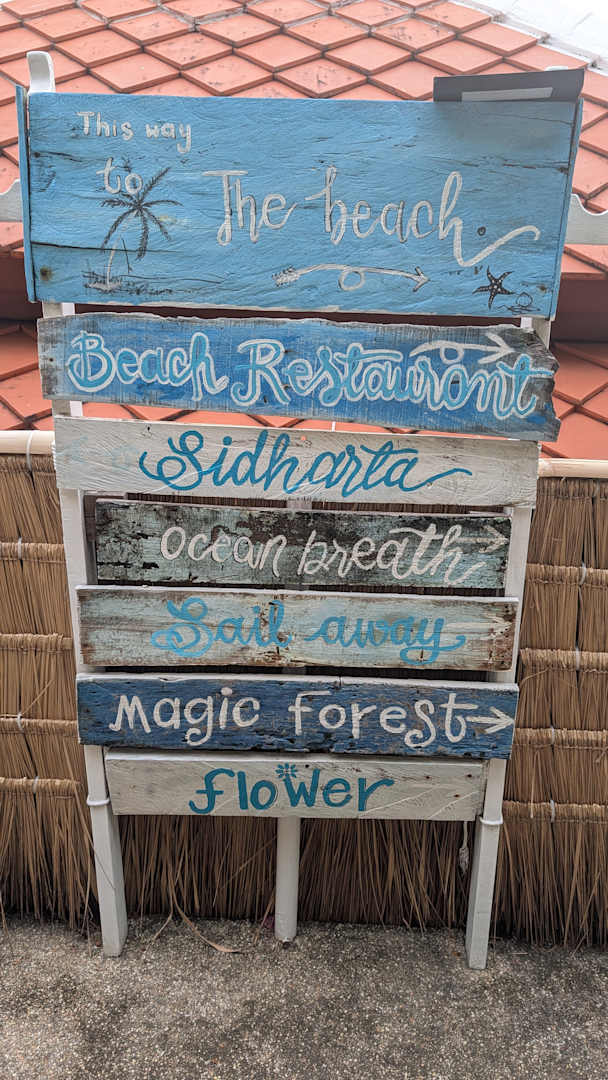 This way
to The beach
Beach Restaurant
Sidharta
Ocean breath
Sail away
Magic Forest
flower